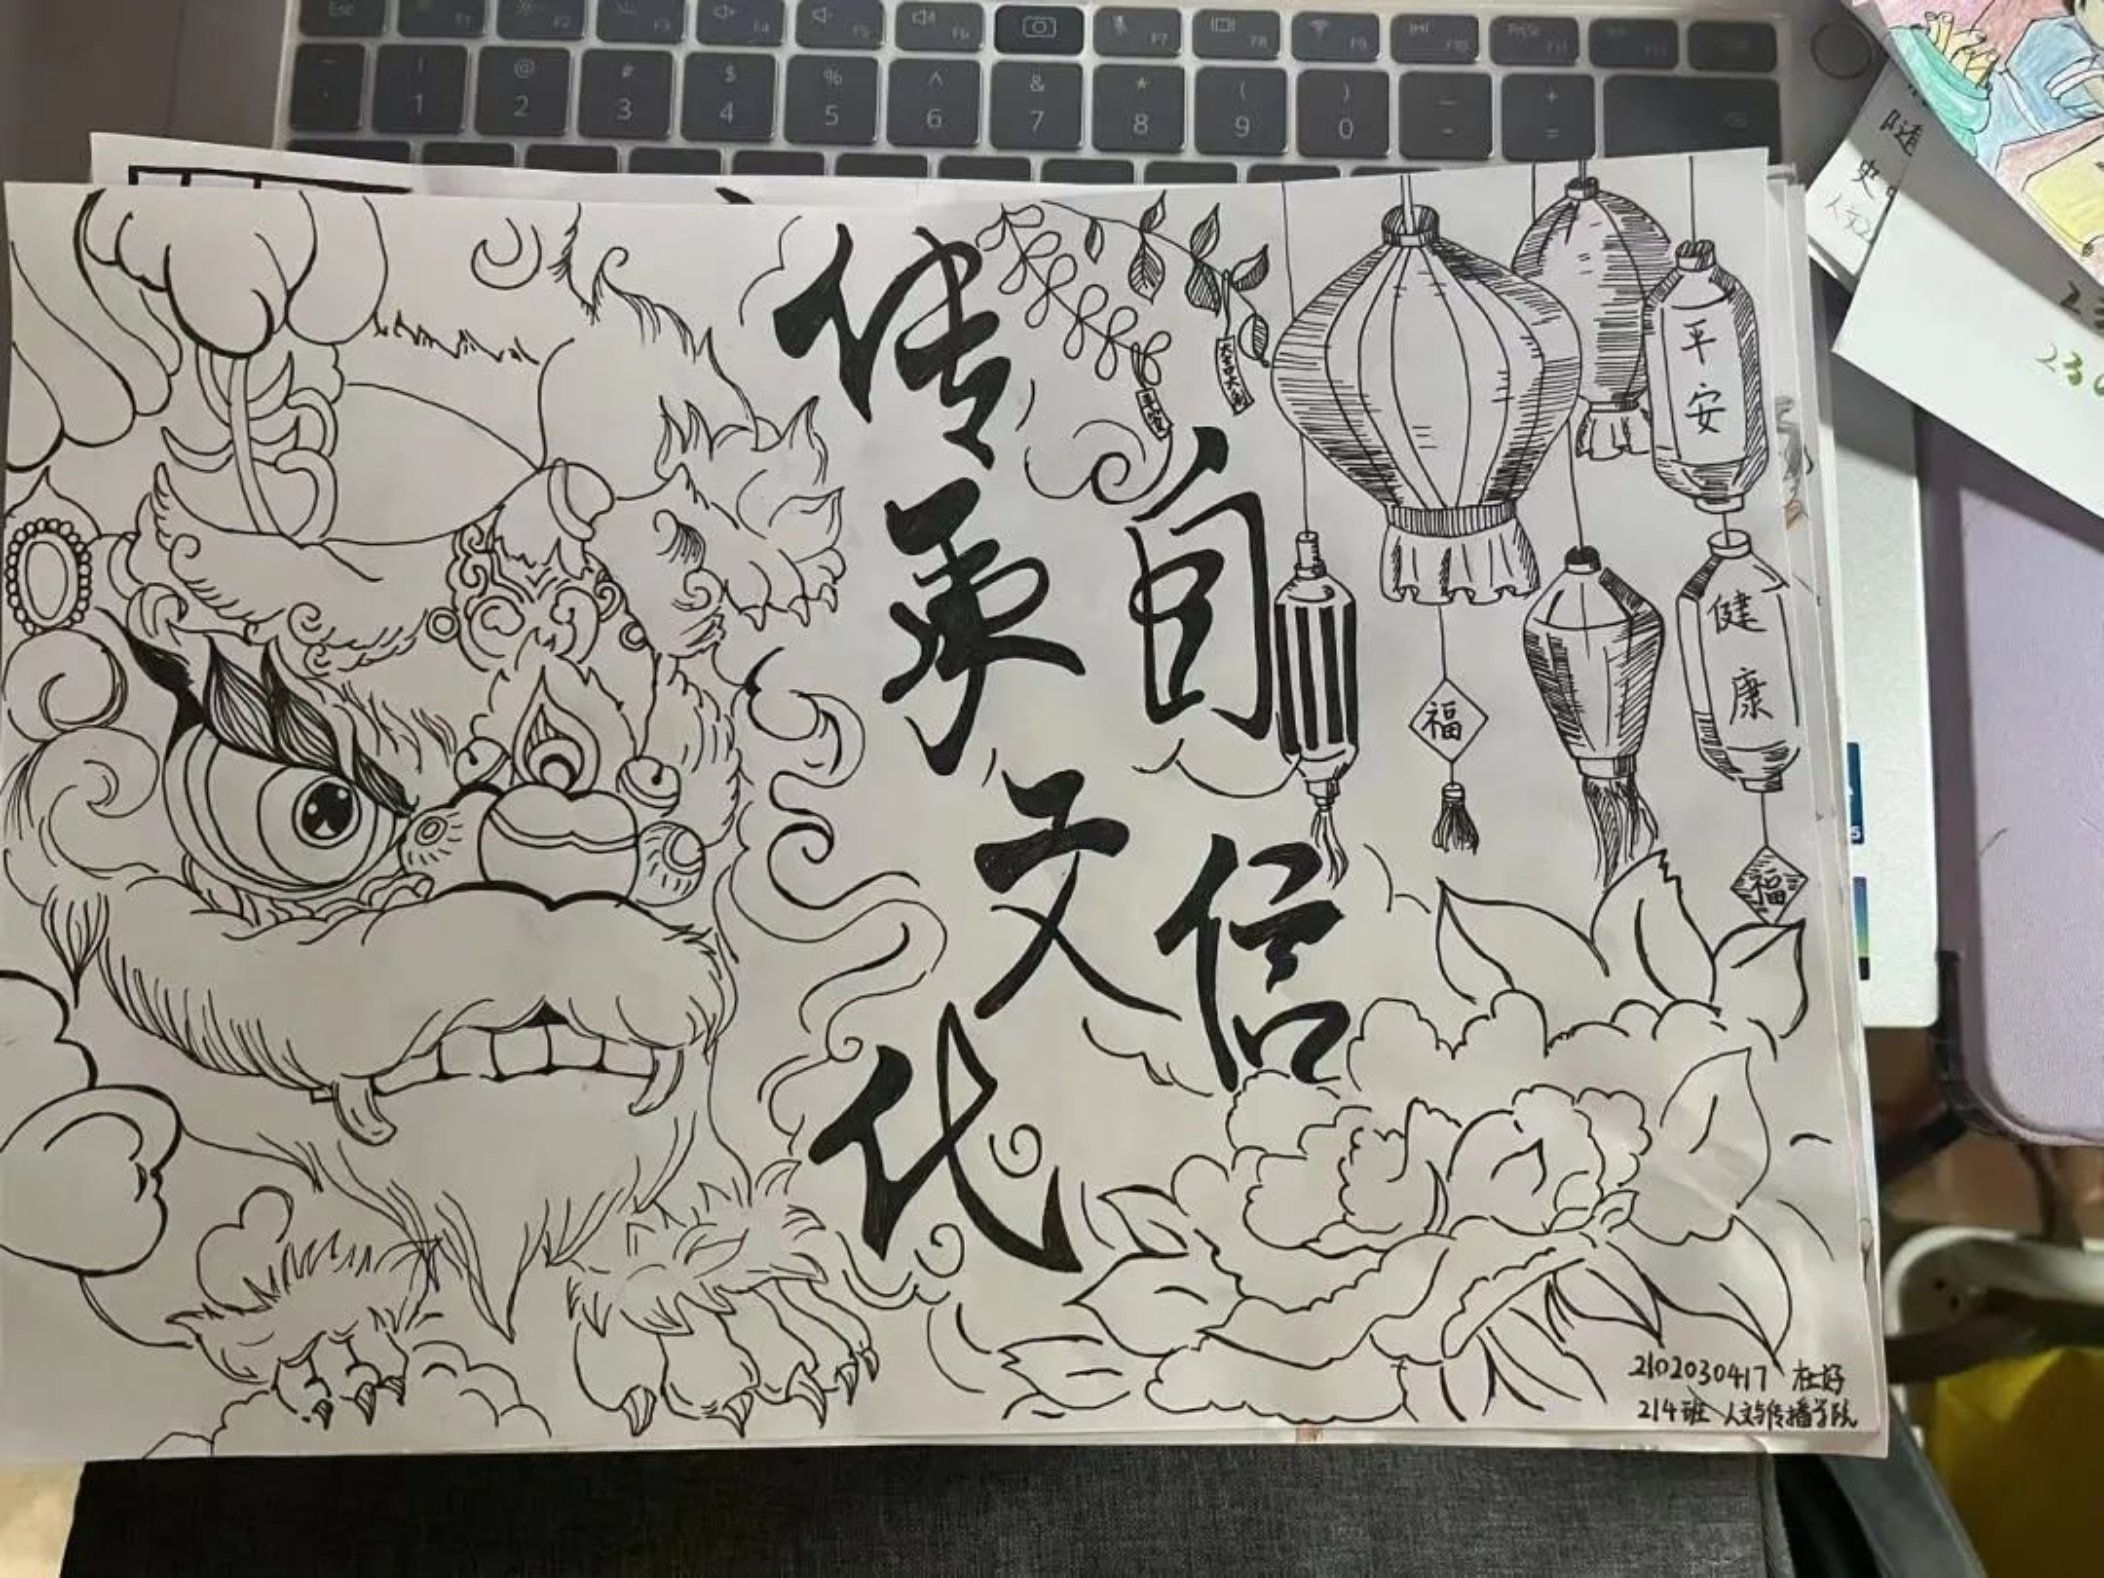 Esc F1 F2 F3 F4 F5 F6 F7 F8 F9 F10 F11
! @ # $ % ^ & * ( ) — +
1 2 3 4 5 6 7 8 9 0 - =
传承
文化
自信
大吉大利
平安
平安
健康
福
福
2102030417
214班 人文与传播学院
史
230